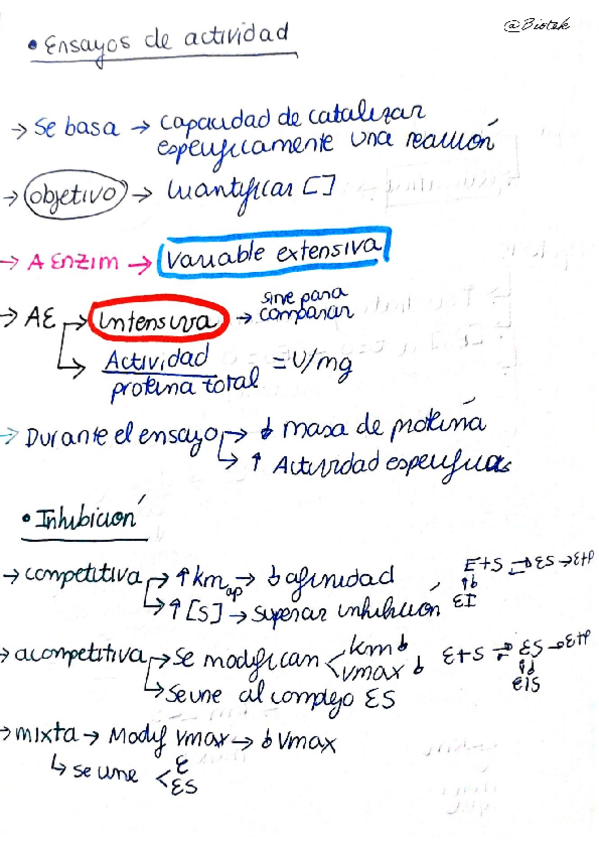 @Biotek
• Ensayos de actividad
→ Se basa → capacidad de catalizar
especificamente una reacción
→ objetivo → Cuantificar []
→ A Enzim → Variable extensiva
→ AE → Intensiva → sirve para
comparar
→ Actividad / proteina total = U/mg
→ Durante el ensayo → ↓ masa de proteina
→ ↑ Actividad especifica
• Inhibición
→ competitiva → ↑ Km ap → ↓ afinidad
→ ↑ [S] → superar inhibición
E+S ⇄ ES → E+P
↑↓
EI
→ acompetitiva → Se modifican < Km ↓
Vmax ↓
E+S ⇄ ES → E+P
↑↓
EIS
→ Se une al complejo ES
→ mixta → Modif Vmax → ↓ Vmax
↳ se une < E
ES